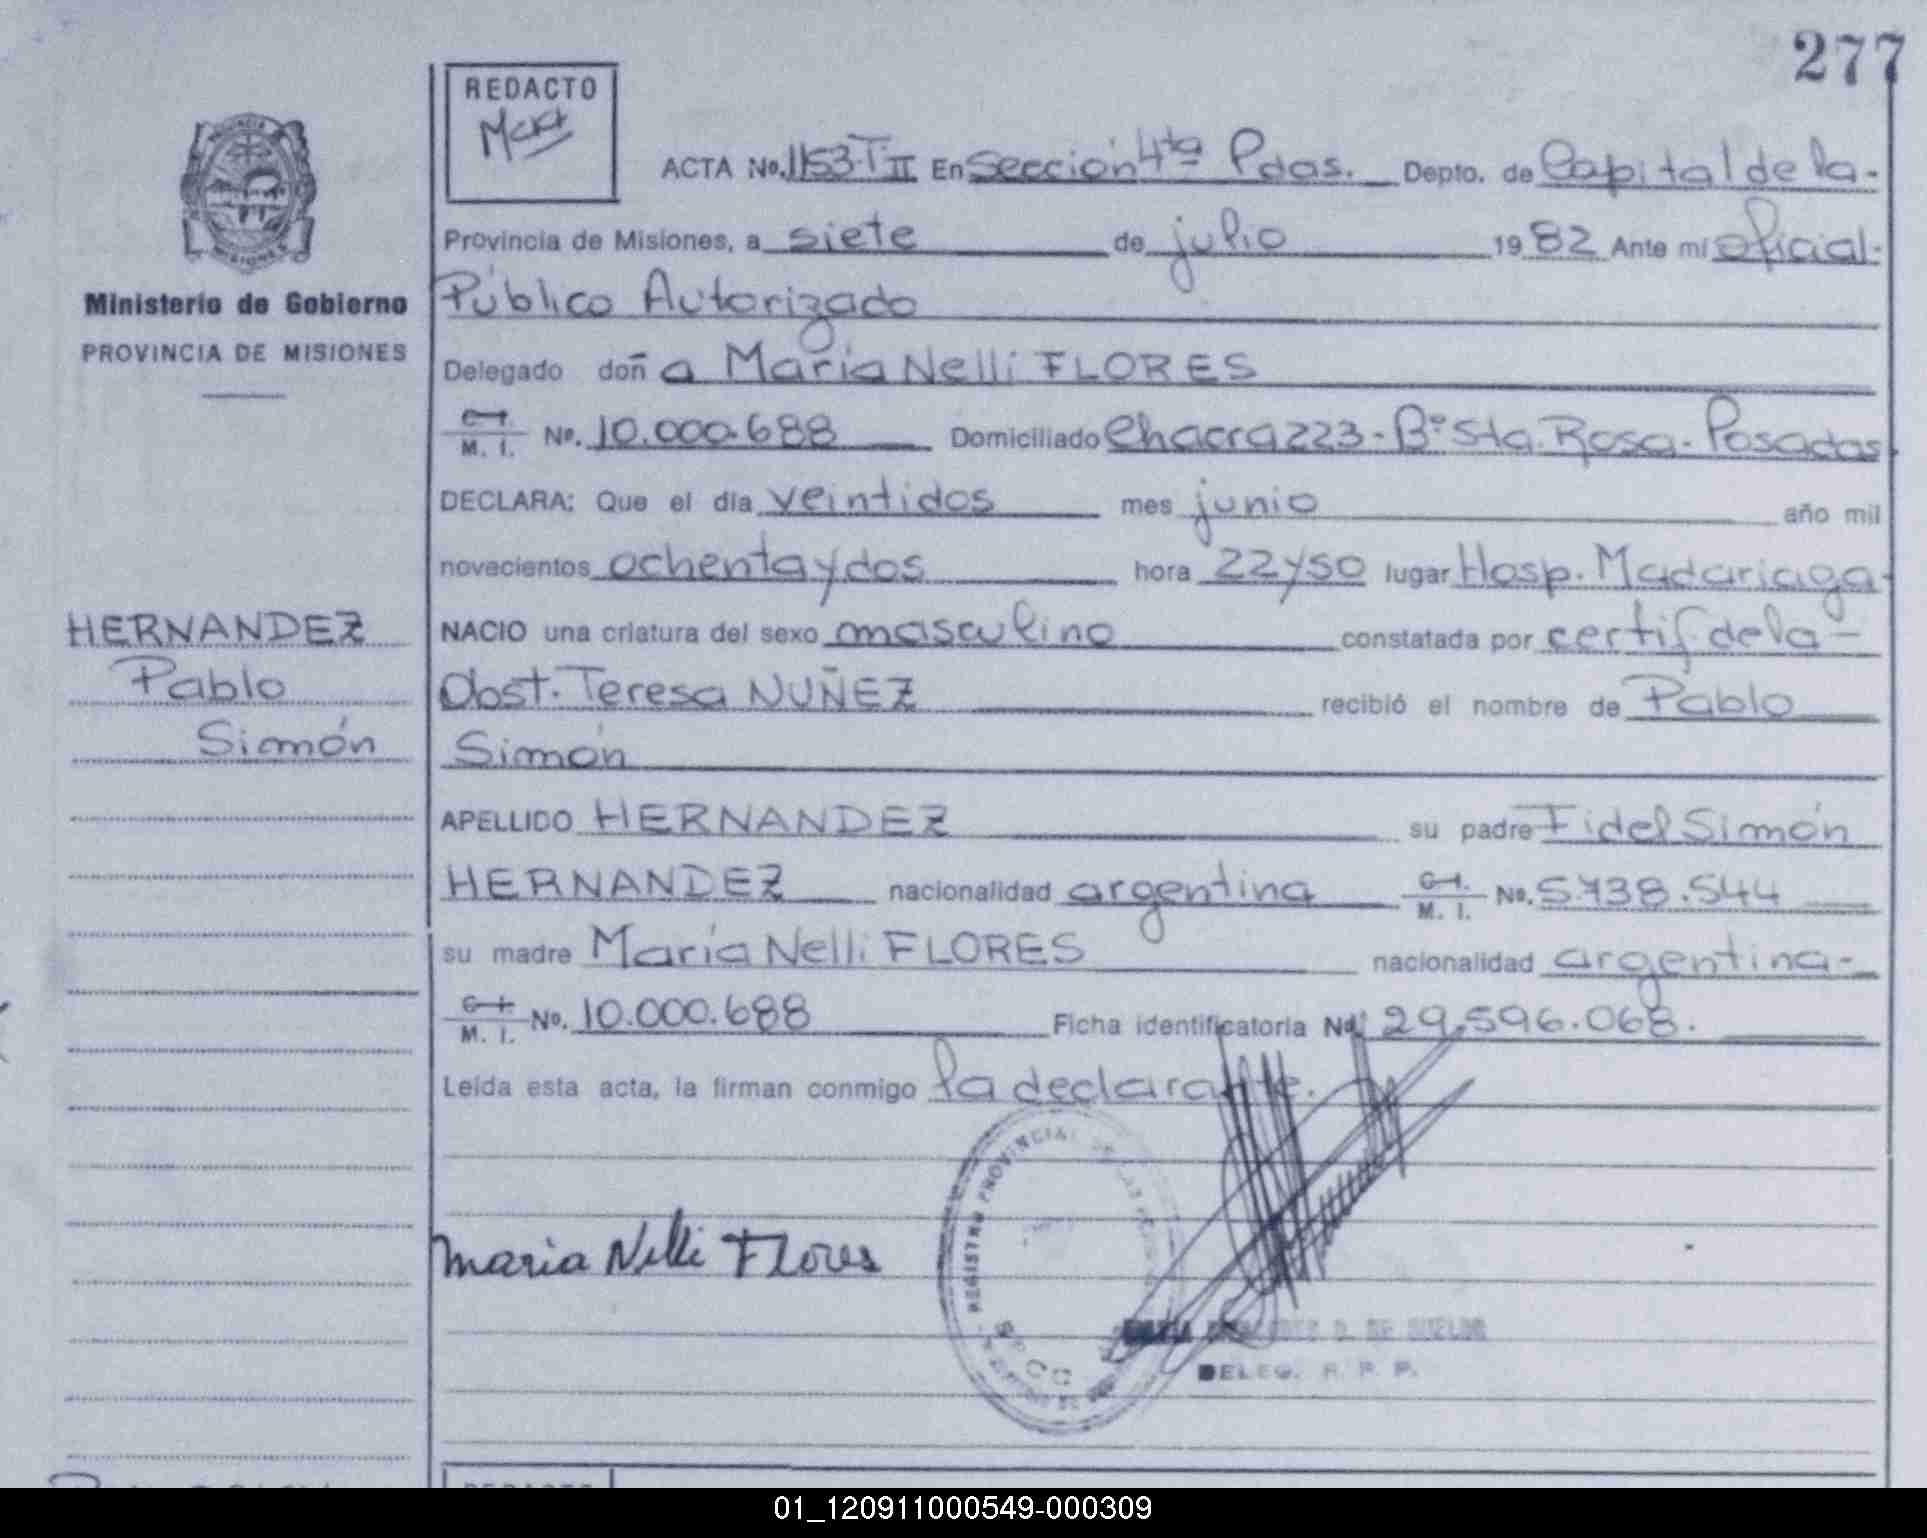 277
REDACTO
PROVINCIA
MISIONES
Ministerio de Gobierno
PROVINCIA DE MISIONES
ACTA No. 1153-T II En Sección 4ta Pdas. Depto. de Capital de la-
Provincia de Misiones, a siete de julio 1982 Ante mí oficial-
Público Autorizado
Delegado doña María Nelli FLORES
C. I. M. I. No. 10.000.688 Domiciliado Chacra 223-B° Sta. Rosa-Posadas
DECLARA: Que el día veintidos mes junio año mil
novecientos ochenta y dos hora 22 y 50 lugar Hosp. Madariaga-
HERNANDEZ
Pablo
Simón
NACIO una criatura del sexo masculino constatada por certif. de la-
Obst. Teresa NUÑEZ recibió el nombre de Pablo
Simón
APELLIDO HERNANDEZ su padre Fidel Simón
HERNANDEZ nacionalidad argentina C. I. M. I. No. 5.738.544
su madre María Nelli FLORES nacionalidad argentina-
C. I. M. I. No. 10.000.688 Ficha identificatoria No. 29.596.068.
Leída esta acta, la firman conmigo la declarante.
maria Nelli Flores
REGISTRO PROVINCIAL DE LAS
DELEG. R. P. P.
REDACTO
01_120911000549-000309